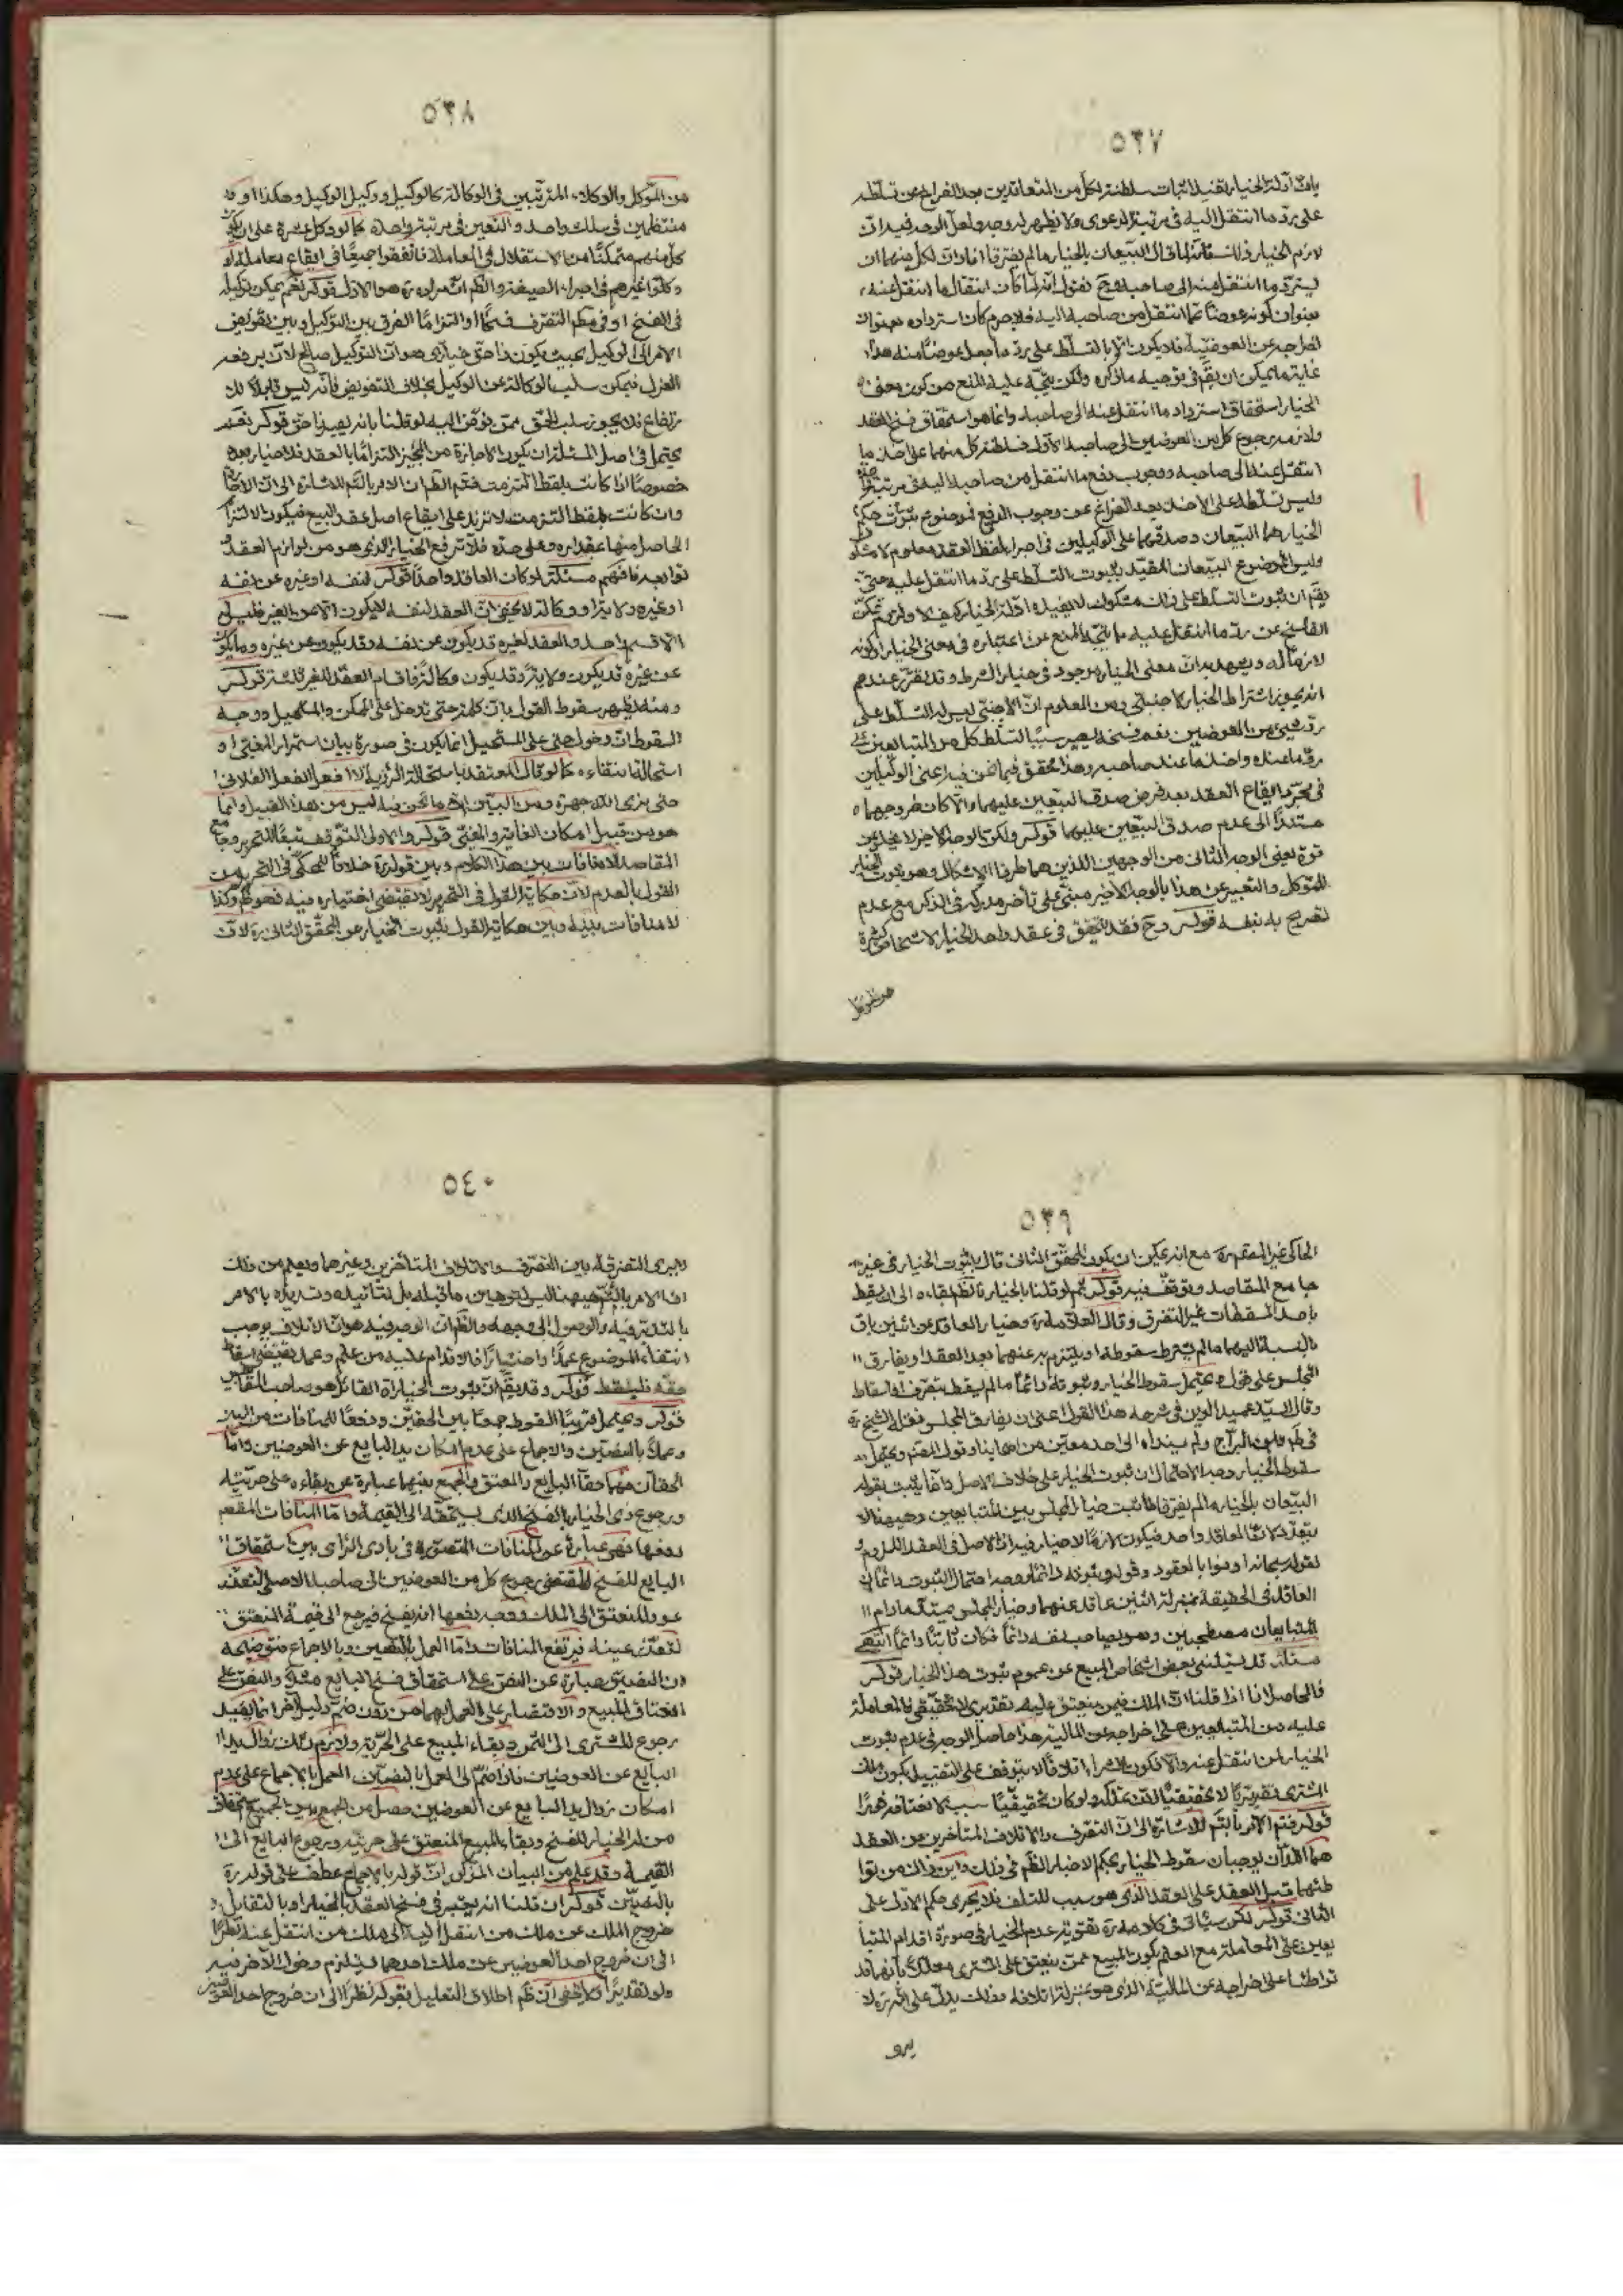 ٥٣٧
بانّ ادلة الخيار تفيد اثبات سلطنة لكل من المتعاقدين بعد الفراغ من تسلّطه
على ردّ ما انتقل اليه في مرتبة الدعوى ولا يظهر له وجه ولعل الوجه فيه ان
لازم الخيار ذلك البيعان بالخيار ما لم يفترقا افاد ان لكل منهما ان
يستردّ ما انتقل منه الى صاحبه وح نقول انه لما كان انتقال ما انتقل عنه
بعنوان كونه عوضا عمّا انتقل من صاحبه اليه فلا جرم كان استرداده بعنوان
اخراجه عن العوضية فلا يكون الا بالتسلّط على ردّ ما جعل عوضا منه هذا
غاية ما يمكن ان يقم في توجيه ما ذكره ولكن يتّجه عليه المنع من كون معنى
الخيار استحقاق استرداد ما انتقل عنه الى صاحبه وانما هو استحقاق فسخ العقد
ولازمه رجوع كل من العوضين الى صاحبه الاول فسلطنة كل منهما على اخذ ما
انتقل عنه الى صاحبه ووجوب دفع ما انتقل من صاحبه اليه في مرتبة
وليس تسلّطه على الاخذ بعد الفراغ عن وجوب الدفع فموضوع ثبوت حكم
الخيار هما البيعان وصدقهما على الوكيلين في اجراء لفظ العقد معلوم لا شك
وليس الموضوع البيعان المقيد بثبوت التسلط على ردّ ما انتقل عليه حتى
يقم ان ثبوت التسلط على ذلك مشكوك لا يفيده ادلة الخيار كيف لا ولزوم تمكن
الفاسخ عن ردّ ما انتقل عليه ما يتجه المنع عن اعتباره في معنى الخيار او كونه
لازما له ويشهد به ان معنى الخيار موجود في خيار الشرط وقد تقرّر عندهم
انه يجوز اشتراط الخيار لاجنبي ومن المعلوم انّ الاجنبي ليس له التسلّط على
ردّ شيء من العوضين نعم فسخه يصير سببا لتسلّط كل من المتبايعين على
ردّ ما عنده واخذ ما عند صاحبه وهذا محقق فيما نحن فيه اعنى الوكيلين
في مجرّد ايقاع العقد بعد فرض صدق البيعين عليهما والا كان خروجهما
مستندا الى عدم صدق البيّعين عليهما قوله ولكن الوجه الاخير لا يخلو عن
قوة يعنى الوجه الثانى من الوجهين اللذين هما طرفا الاشكال وهو ثبوت الخيار
للموكل والتعبير عن هذا بالوجه الاخير مبنى على تأخر مدركه في الذكر مع عدم
تصريح به نفسه قوله وح فقد يتحقق في عقد واحد الخيار لاشخاص كثيرة
٥٣٨
من الموكل والوكلاء المترتّبين في الوكالة كالوكيل ووكيل الوكيل وهكذا او
منتظمين في سلك واحد والتعين في مرتبة واحدة كما لو وكل عشرة على ان يكون
كل منهم متمكنا من الاستقلال في المعاملة فاتفقوا جميعا في ايقاع معاملة او
وكلوا غيرهم في اجراء الصيغة والظم انّ مراده ره هو الاول قوله نعم يمكن توكيله
في الفسخ او في مطلق التصرف فسخا او التزاما الفرق بين التوكيل وبين تفويض
الامر الى الوكيل بحيث يكون ذا حق خيارى هو ان التوكيل صالح لان يرفعه
العزل فيمكن سلب الوكالة عن الوكيل بخلاف التفويض فانه ليس قابلا لذلك
الارتفاع فلا يجوز سلب الحق ممن فوّض اليه لو قلنا بانه يصير ذا حق قوله نعم
يحتمل في اصل المسئلة ان يكون الاجازة من المجيز التزاما بالعقد فلا خيار بعده
خصوصا اذا كانت بلفظ التزمت فتم الظم ان الامر بالتم للاشارة الى ان الاجازة
وان كانت بلفظ التزمت لا تزيد على ايقاع اصل عقد البيع فيكون الالتزام
الحاصل منها عقداره وعلى حدّه فلا ترفع الخيار الذى هو من لوازم العقد و
توابعه فافهم مسئلة لو كان العاقد واحدا قوله لنفسه او غيره عن نفسه
او غيره ولاية او وكالة لا يخفى ان العقد لنفسه لا يكون الا عن الغير فليس له
الا قسم واحد والعقد لغيره قد يكون عن نفسه وقد يكون عن غيره وما يكون
عن غيره قد يكون ولاية وقد يكون وكالة فاقسام العقد للغير ثلثة قوله
ومنه يظهر سقوط القول بان كلمة حتى تدخل على الممكن والمستحيل ووجه
السقوط انّ دخول حتى على المستحيل انما يكون في صورة بيان استمرار المغيى او
استحالة انتقاءه كما لو قال المعتقد باستحالة الرؤية لا افعل الفعل الفلانى
حتى يرى الله جهرة ومن البيّن ان ما نحن فيه ليس من هذا القبيل وانما
هو من قبيل امكان الغاية والمغيى قوله والاولى التوقف تبعا للتحرير وجامع
المقاصد لا منافات بين هذا الكلام وبين قوله ره خلافا للمحكى في التحرير من
القول بالعدم لان حكاية القول في التحرير لا تقتضى اختياره فيه فهو لم وكذا
لا منافات بينه وبين حكاية القول بثبوت الخيار عن المحقق الثانى ره لان
٥٣٩
الحاكى غير المصم ره مع انه يمكن ان يكون المحقق الثانى قال بثبوت الخيار في غير
جامع المقاصد وتوقف فيه قوله ثم لو قلنا بالخيار فالظم بقاءه الى ان يسقط
باحد المسقطات غير التفرق وقال العلامة ره وخيار العاقد عن اثنين باق
بالنسبة اليهما ما لم يشترط سقوطه او يلتزم به عنهما بعد العقد او يفارق
المجلس على قول ويحتمل سقوط الخيار وثبوته دائما ما لم يسقط بتصرف او اسقاط
وقال السيد عميد الدين في شرحه هذا القول اعنى ان يفارق المجلس نقله الشيخ ره
في ط وابن البراج ولم يسنداه الى احد معين من اصحابنا وقول المصم ويحتمل
سقوط الخيار وجه الاحتمال ان ثبوت الخيار على خلاف الاصل وانما يثبت بقوله
البيعان بالخيار ما لم يفترقا فاثبت خيار المجلس بين المتبايعين وهيهنا لا
يتعدّد لان العاقد واحد فيكون لازما لا خيار فيه اذ الاصل في العقد اللزوم
لقوله سبحانه اوفوا بالعقود وقوله وثبوته دائما وجه احتمال الثبوت دائما ان
العاقد في الحقيقة بمنزلة اثنين عاقد عنهما وخيار المجلس يمتدّ ما دام
المتبايعان مصطحبين وهو يصاحب نفسه دائما فكان ثابتا دائما انتهى
مسئلة قد يستثنى بعض اشخاص المبيع عن عموم ثبوت هذا الخيار قوله
فالحاصل انا اذا قلنا ان الملك فيمن ينعتق عليه تقديرى لا تحقيقى فالمعاملة
عليه من المتبايعين على اخراجه عن المالية هذا حاصل الوجه في عدم ثبوت
الخيار لمن انتقل عنه والا فكون الشراء اتلافا لا يتوقف على التقييد بكون ملك
المشترى تقديريا لا تحقيقيا اذ تملكه ولو كان تحقيقيا سبب لانعتاقه قهرا
قوله فتم الامر بالتم للاشارة الى ان التصرف والاتلاف المتأخرين من العقد
هما اللذان يوجبان سقوط الخيار بحكم الاخبار الظم في ذلك واين ذلك من توا
طئهما قبل العقد على العقد الذى هو سبب للتلف فلا يجرى حكم الاول على
الثانى قوله لكن سيأتى في كلامه ره تقوية عدم الخيار في صورة اقدام المتبا
يعين على المعاملة مع العلم بكون المبيع ممن ينعتق على المشترى معللا بانهما قد
تواطئا على اخراجه عن المالية الذى هو بمنزلة اتلافه وذلك يدلّ على انه ره لا
يرى
٥٤٠
ويرى التفرقة بين التصرف والاتلاف المتأخرين وغيرهما ويعلم من ذلك
ان الامر بالتم هيهنا ليس لتوهين ما قبله بل لتأييده وتسديده بالامر
بالتدبر فيه والوصول الى وجهه والظم ان الوجه فيه هو ان الاتلاف يوجب
انتفاء الموضوع عمدا واختيارا فالاقدام عليه من علم وعمد يقتضى اسقاط
حقه فليسقط قوله وقد يقم انّ ثبوت الخيار اه القائل هو صاحب المقابيس
قوله ويحتمل قريبا السقوط جمعا بين الحقين ودفعا للمنافات من البين
وعملا بالنصين والاجماع على عدم امكان يد البايع عن العوضين وامّا
الحقان فهما حقا البايع والمعتق والجمع بينهما عبارة عن بقاءه على حرّيته
ورجوع ذى الخيار بالفسخ الذى يستحقه الى القيمة وامّا المنافات المقصم
دفعها فهى عبارة عن المنافات المتصورة في بادى الرأى بين استحقاق
البايع للفسخ المقتضى رجوع كل من العوضين الى صاحبه الاصلى لتعذّر
عود المنعتق الى الملك ووجه دفعها انه يفسخ فيرجع الى قيمة المنعتق
لتعذّر عينه فيرتفع المنافات وامّا العمل بالنصين وبالاجماع فتوضيحه
ان النصين عبارة عن النص على استحقاق فسخ البايع مثلا والنص على
انعتاق المبيع والاقتصار على العمل بهما من دون ضمّ دليل اخر انما يفيد
رجوع المشترى الى الثمن وبقاء المبيع على الحرّية ولازم ذلك زوال يد
البايع عن العوضين فاذا ضمّ الى العمل بالنصين العمل بالاجماع على عدم
امكان زوال يد البايع عن العوضين حصل من الجمع بين الجميع استحقاق
من له الخيار للفسخ وبقاء المبيع المنعتق على حرّيته ورجوع البايع الى
القيمة وقد علم من البيان المذكور انّ قوله بالاجماع عطف على قوله ره
بالنصين قوله ان قلنا انه يعتبر في فسخ العقد بالخيار او بالتقايل
خروج الملك عن ملك من انتقل اليه الى ملك من انتقل عنه نظرا
الى ان خروج احد العوضين عن ملك احدهما يستلزم دخول الاخر فيه
ولو تقديرا لا يخفى ان ظم اطلاق التعليل بقوله نظرا الى ان خروج احد العوضين